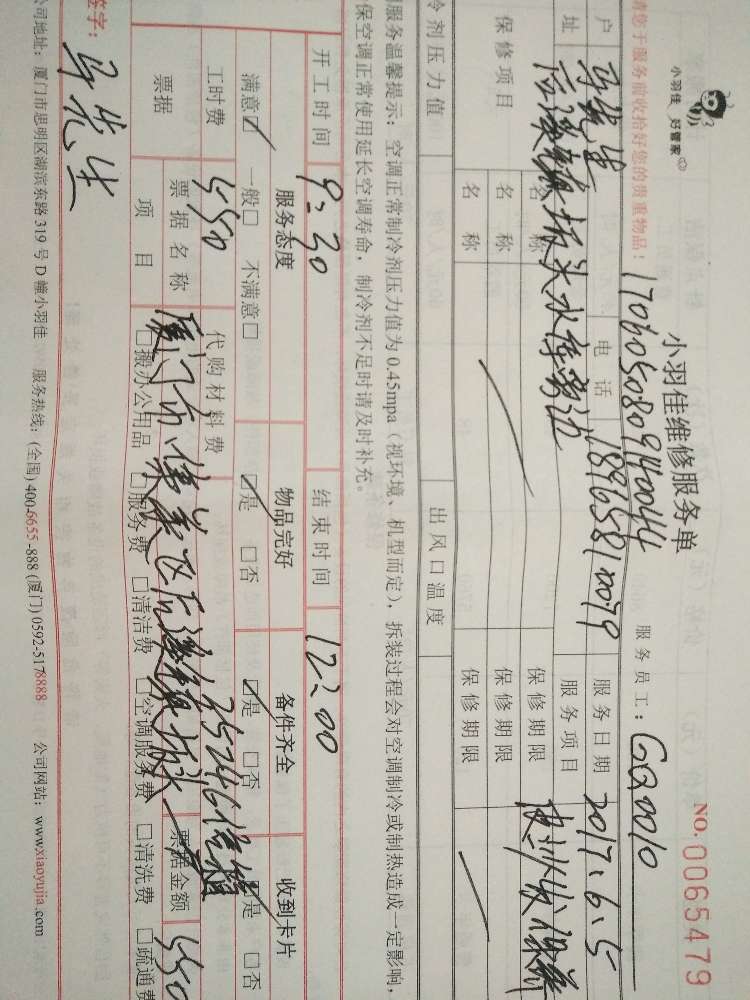 小羽佳 好管家
小羽佳维修服务单
NO. 0065479
请您于服务前收拾好您的贵重物品！
17060508091400144
服务员工：GQ0010
户
电话 18965811079
服务日期 2017.6.5
址 后溪镇坂头水库旁边
服务项目
保修项目
名称
保修期限
名称
保修期限
名称
保修期限
冷剂压力值
出风口温度
服务温馨提示：空调正常制冷剂压力值为0.45mpa（视环境、机型而定），拆装过程会对空调制冷或制热造成一定影响，
保空调正常使用延长空调寿命，制冷剂不足时请及时补充。
开工时间 9:30
结束时间 12:00
服务态度 物品完好 备件齐全 收到卡片
满意☑ 一般□ 不满意□ ☑是 □否 ☑是 □否 ☑是 □否
工时费 550
代购材料费
票据
票据名称 厦门市集美区后溪镇坂头
票据金额 550
项目 □搬办公用品 □服务费 □清洁费 □空调服务费 □清洗费 □疏通费
签字：
公司地址：厦门市思明区湖滨东路319号D幢小羽佳 服务热线：(全国) 400-6655-888 (厦门) 0592-5178888 公司网站：www.xiaoyujia.com